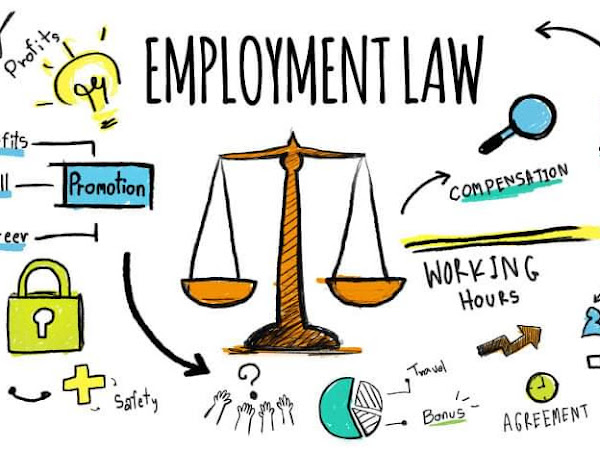 Profits
EMPLOYMENT LAW
Promotion
COMPENSATION
WORKING
HOURS
Safety
?
Travel
Bonus
AGREEMENT